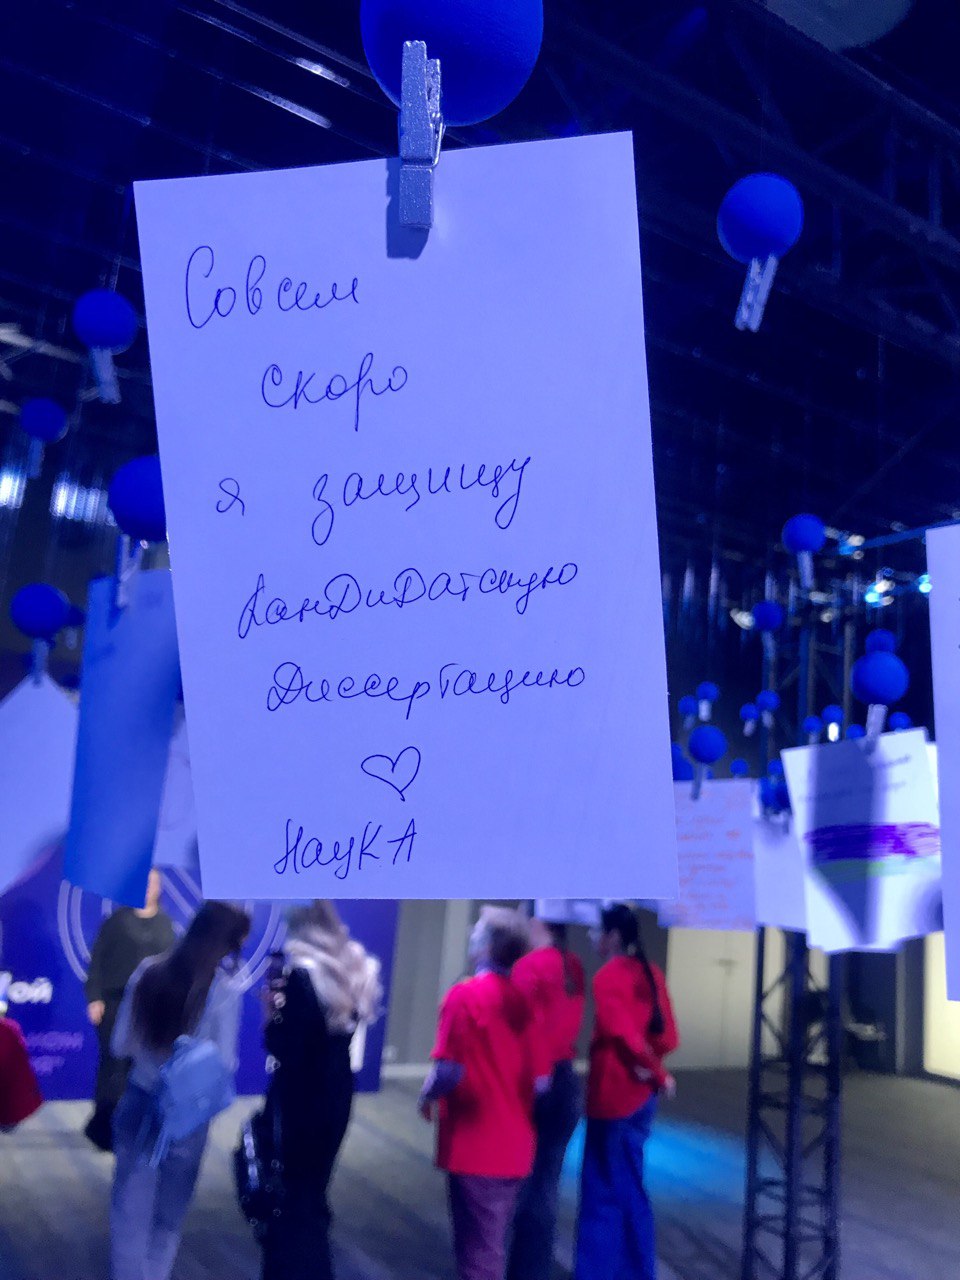 Совсем
скоро
я защищу
кандидатскую
диссертацию
♡
Наука
ой